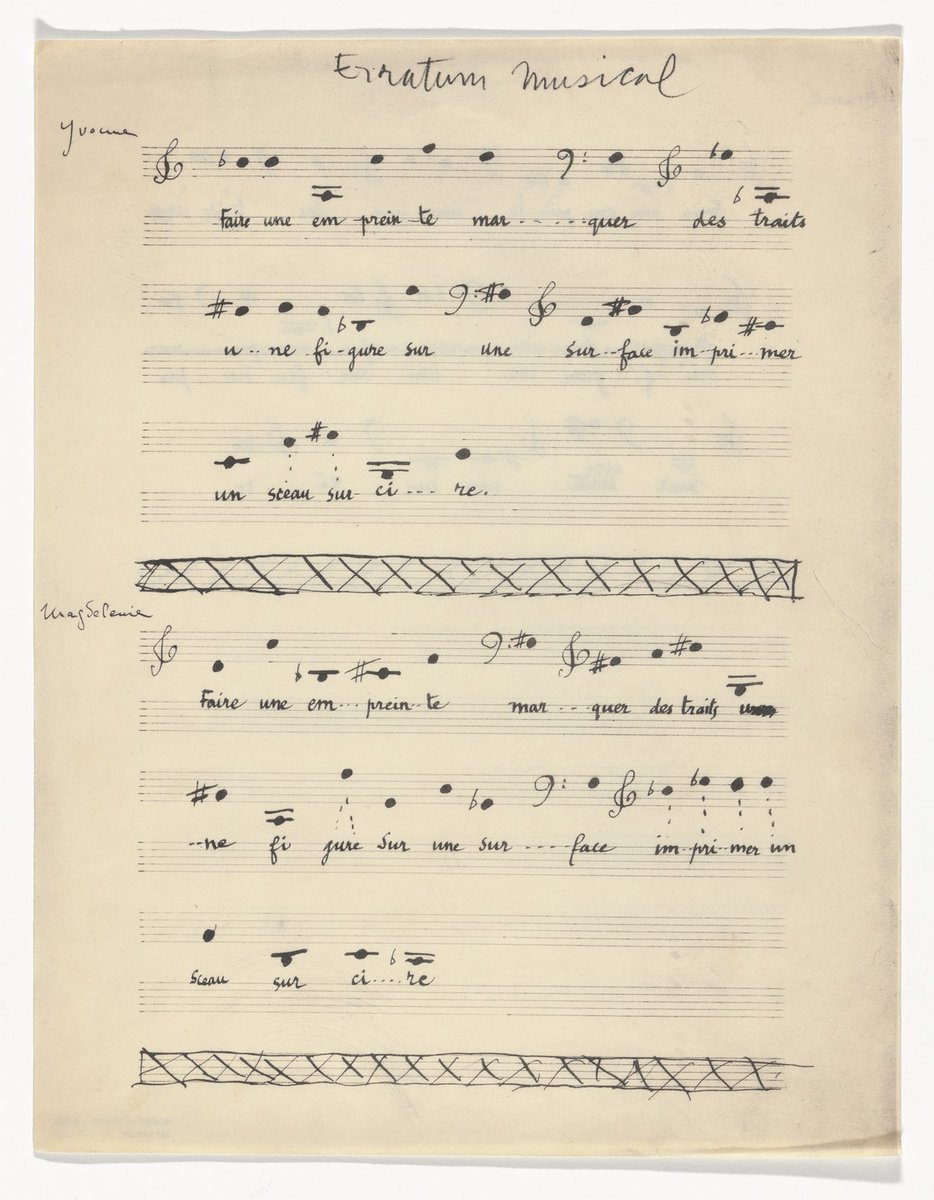 Erratum Musical
Yvonne
Faire une em prein te mar - - - - quer des traits
u - - ne fi - gure sur une sur - - face im - pri - - mer
un sceau sur - ci - - - - re.
Magdeleine
Faire une em - - - prein - te mar - - - quer des traits
- - ne fi gure sur une sur - - - - face im - pri - mer un
sceau sur ci - - - - re